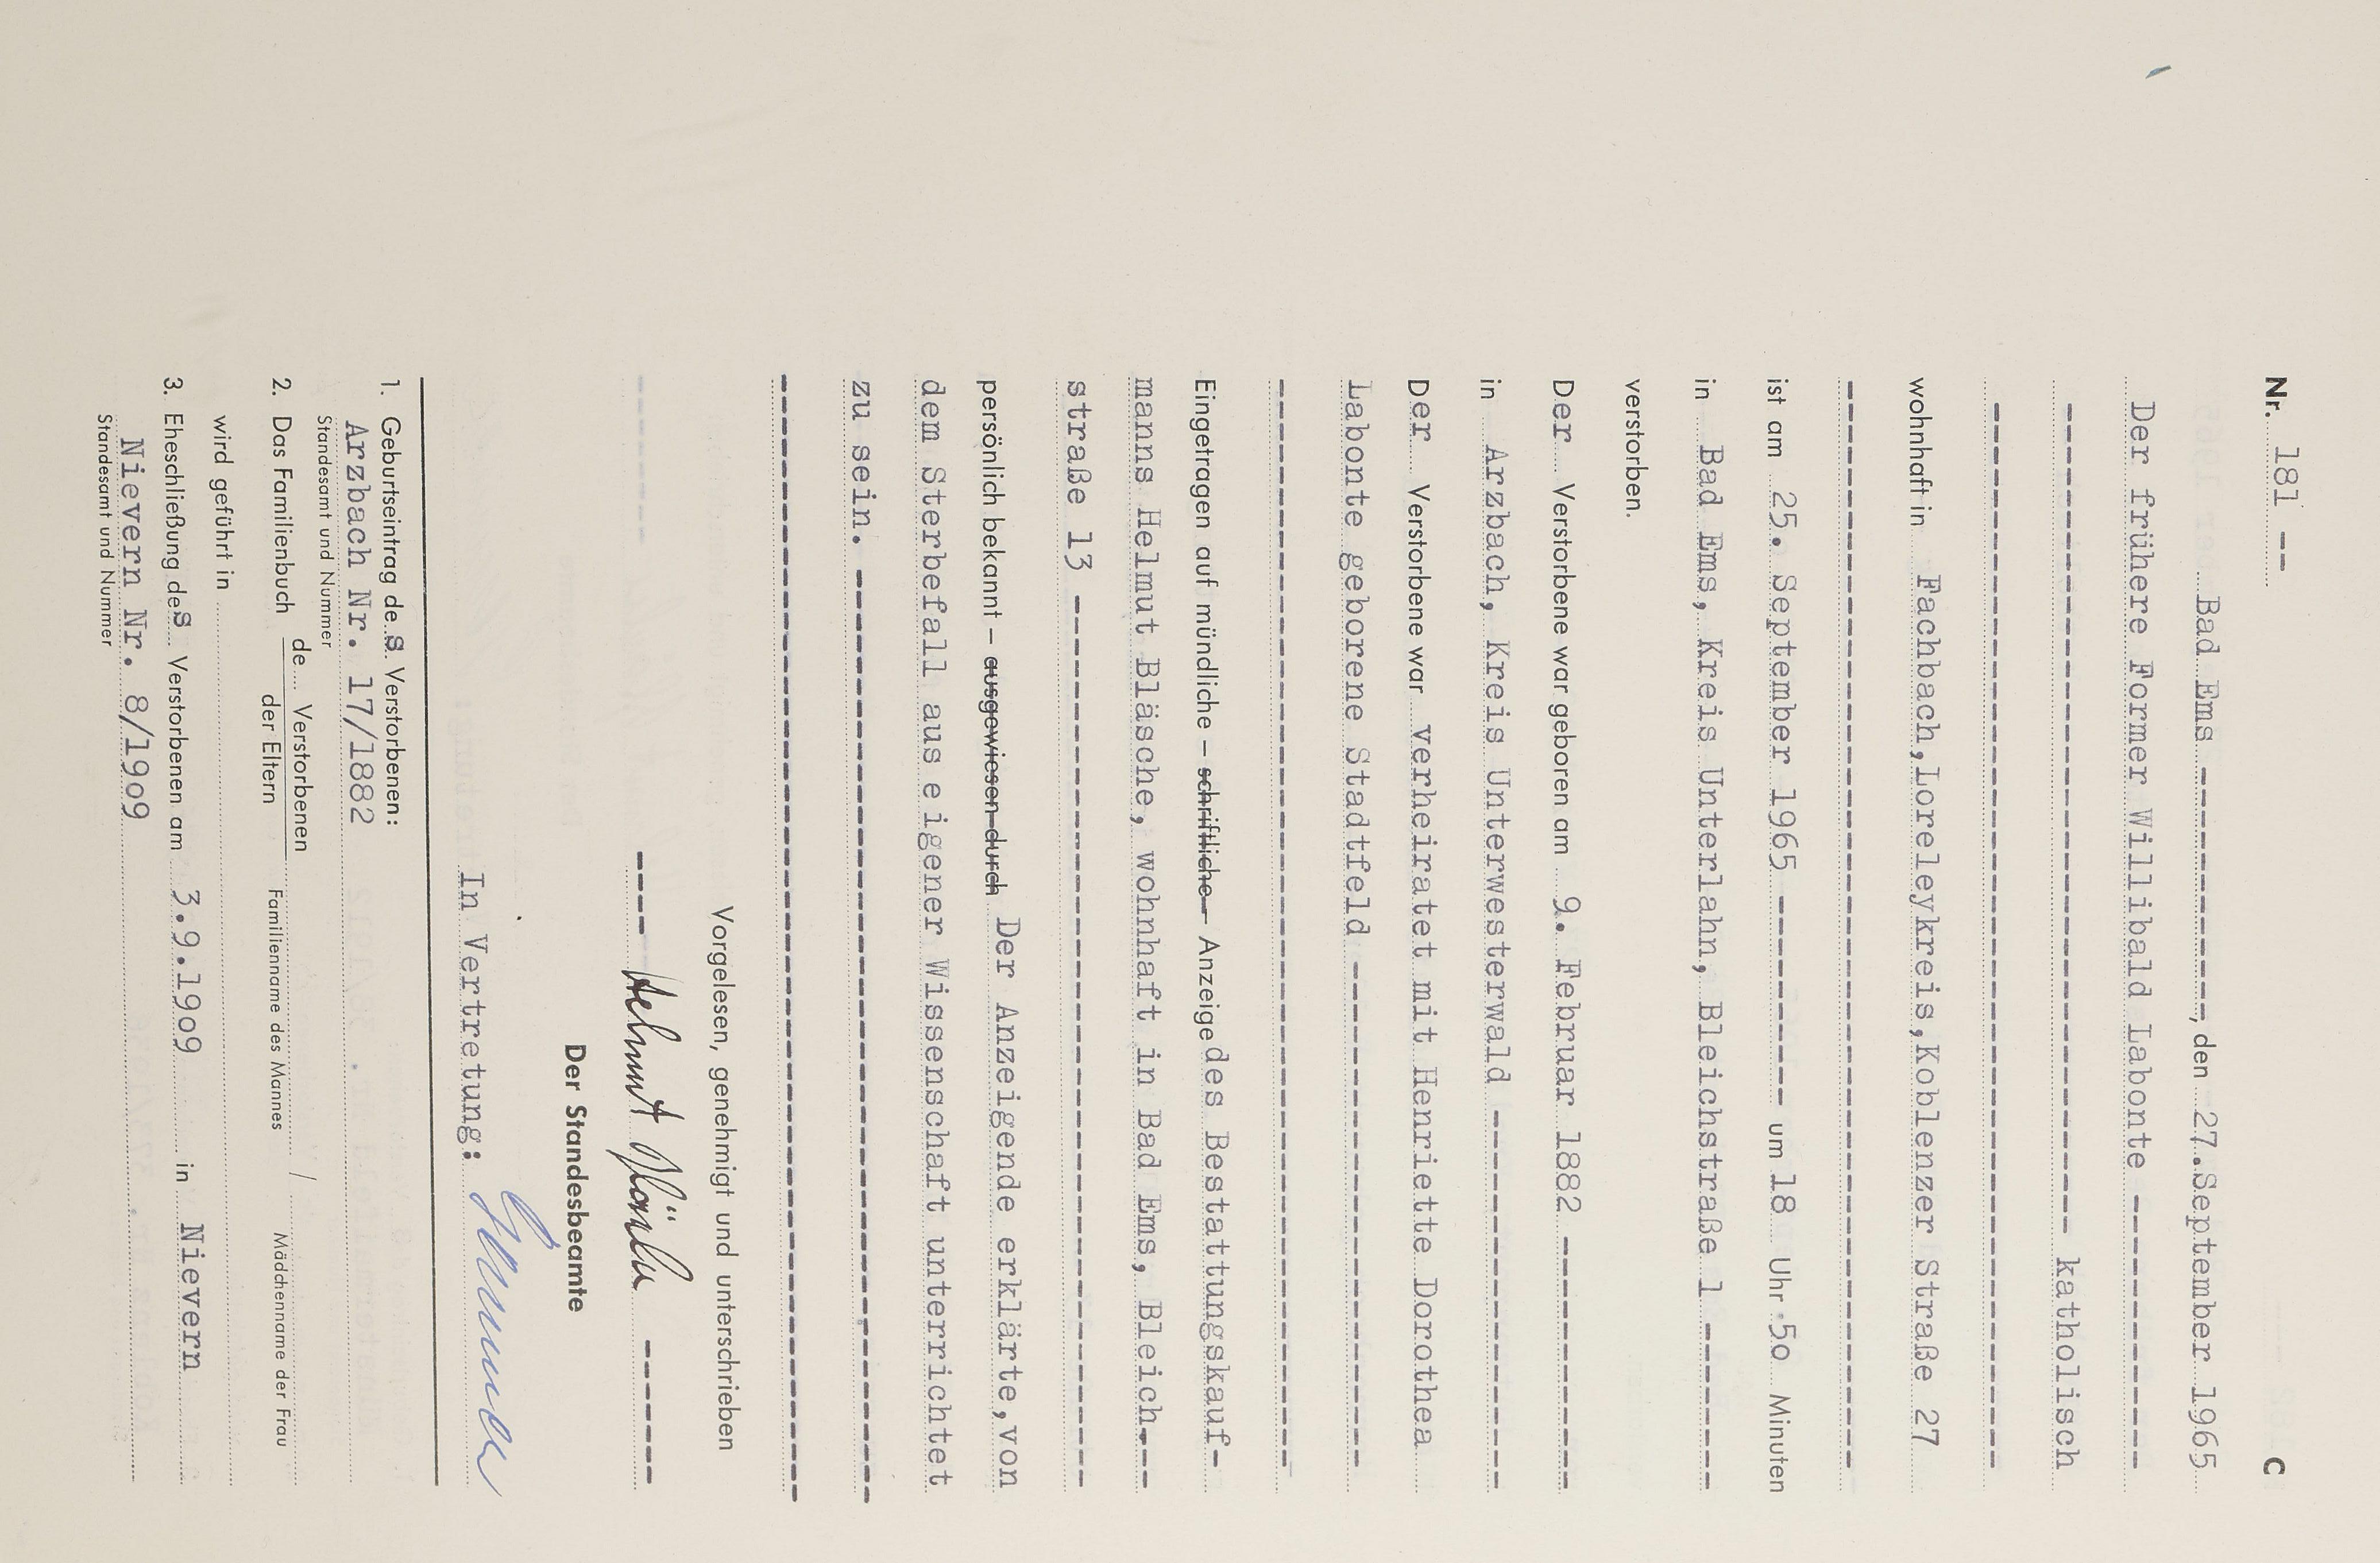 Nr. 181 -- C
Bad Ems -------------, den 27.September 1965
Der frühere Former Willibald Labonte -------------
------------------------------------------ katholisch
------------------------------------------------------
wohnhaft in Fachbach,Loreleykreis,Koblenzer Straße 27
------------------------------------------------------
ist am 25. September 1965 ----------- um 18 Uhr 5o Minuten
in Bad Ems, Kreis Unterlahn, Bleichstraße 1 --------
verstorben.
Der Verstorbene war geboren am 9. Februar 1882 ------------
in Arzbach, Kreis Unterwesterwald ------------------
Der Verstorbene war verheiratet mit Henriette Dorothea
Labonte geborene Stadtfeld ------------------------
------------------------------------------------------
Eingetragen auf mündliche – schriftliche – Anzeige des Bestattungskauf-
manns Helmut Bläsche, wohnhaft in Bad Ems, Bleich----
straße 13 ------------------------------------------
persönlich bekannt – ausgewiesen durch Der Anzeigende erklärte,von
dem Sterbefall aus eigener Wissenschaft unterrichtet
zu sein. ---------------------------------------------
------------------------------------------------------
Vorgelesen, genehmigt und unterschrieben
---- Helmut Bläsche -------
Der Standesbeamte
In Vertretung:
1. Geburtseintrag des Verstorbenen:
Arzbach Nr. 17/1882
Standesamt und Nummer
2. Das Familienbuch de... Verstorbenen
der Eltern Familienname des Mannes / Mädchenname der Frau
wird geführt in
3. Eheschließung des Verstorbenen am 3.9.19o9 in Nievern
Nievern Nr. 8/19o9
Standesamt und Nummer